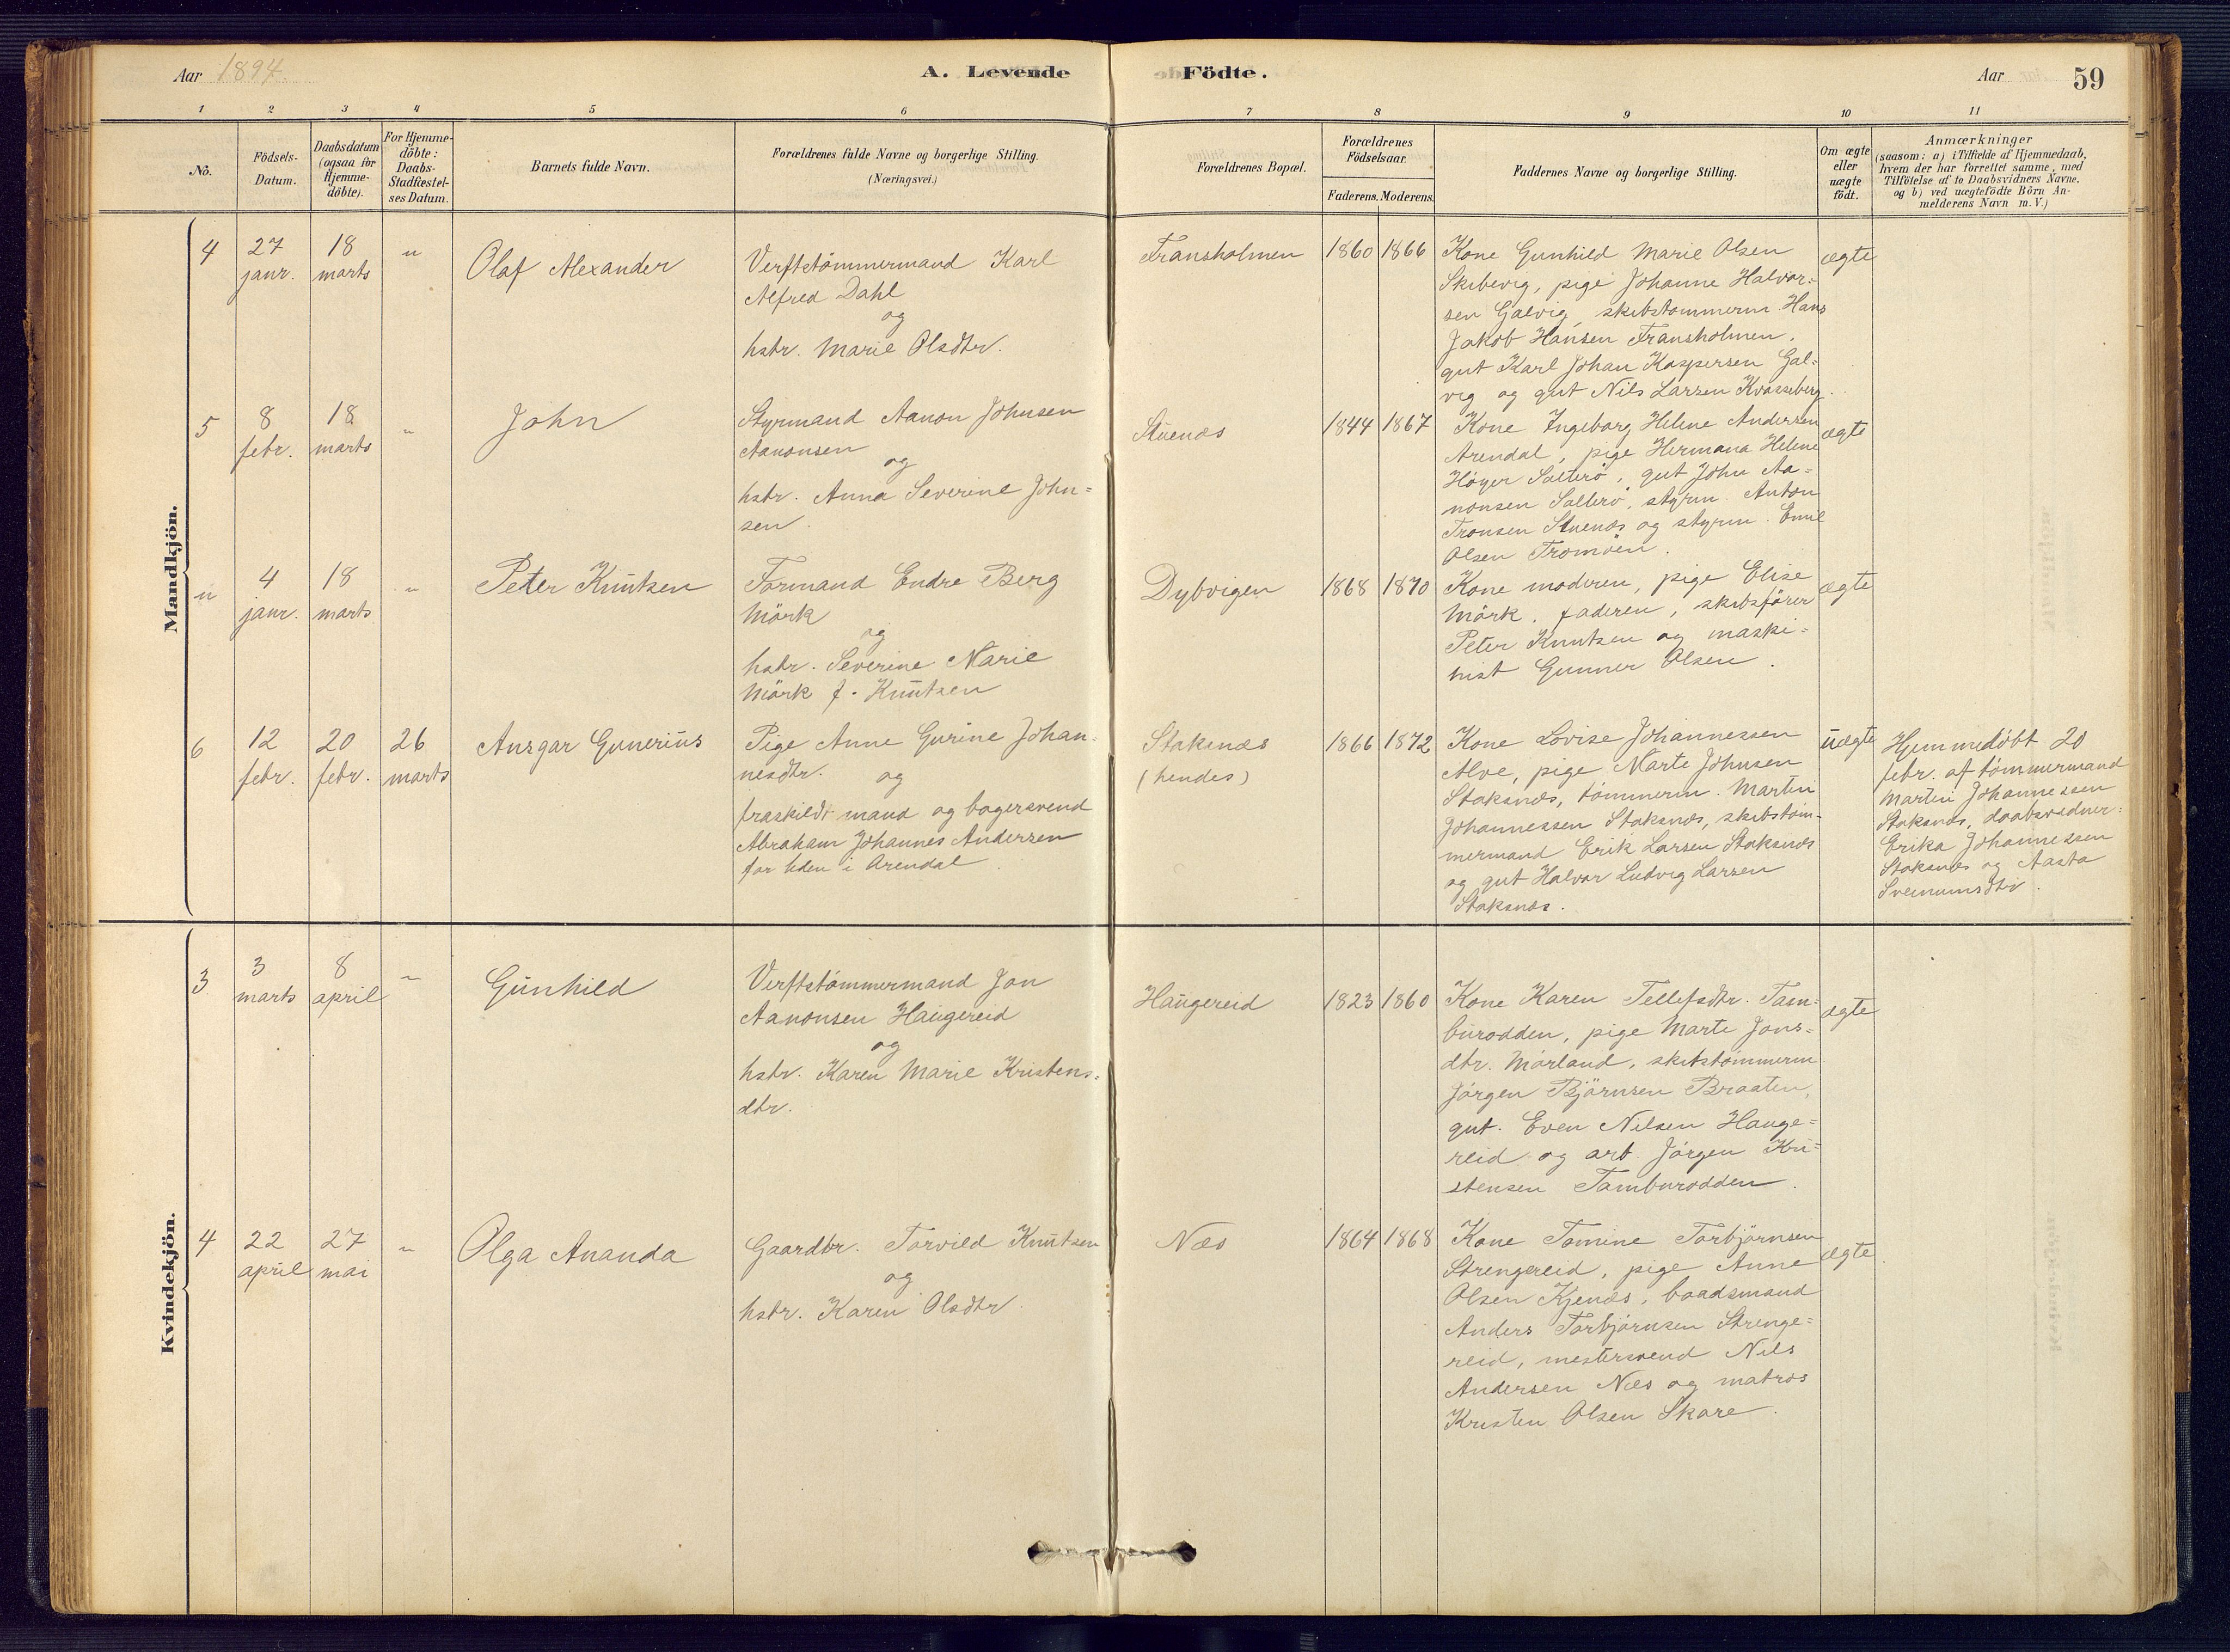 Aar 1894.
A. Levende Födte.
Aar 59
1 2 3 4 5 6 7 8 9 10 11
No.
Födsels-
Datum.
Daabsdatum
(ogsaa for
Hjemme-
döbte).
For Hjemme-
döbte:
Daabs-
Stadfæstel-
ses Datum.
Barnets fulde Navn.
Forældrenes fulde Navne og borgerlige Stilling.
(Næringsvei.)
Forældrenes Bopæl.
Forældrenes
Födselsaar.
Faderens. Moderens.
Faddernes Navne og borgerlige Stilling.
Om ægte
eller
uægte
födt.
Anmærkninger
(saasom: a) i Tilfælde af Hjemmedaab,
hvem der har forrettet samme, med
Tilföielse af to Daabsvidners Navne,
og b) ved uægtefödte Börn An-
melderens Navn m. V.)
Mandkjön.
4
27
janr.
18
marts
"
Olaf Alexander
Verftstömmermand Karl
Alfred Dahl
og
hstr. Marie Olsdtr.
Fransholmen
1860 1866
Kone Gunhild Marie Olsen
Skibevig, pige Johanne Halvor=
sen Galvig, skibstømmerm. Hans
Jakob Hansen Fransholmen,
gut Karl Johan Kaspersen Gal=
vig og gut Nils Larsen Kvasseberg.
ægte
5
8
febr.
18
marts
"
John
Styrmand Aanon Johnsen
Aanonsen
og
hstr. Anna Severine John=
sen.
Stuenæs
1844 1867
Kone Ingeborg Helene Andersen
Arendal, pige Hermana Helene
Höyer Salterö, gut John Aa=
nonsen Salterö, styrm. Anton
Tronsen Stuenæs og styrm. Emil
Olsen Tromöen.
ægte
"
4
janr.
18
marts
"
Peter Knutsen
Formand Endre Berg
Mörk
og
hstr. Severine Marie
Mörk f. Knutsen
Dybvigen
1868 1870
Kone moderen, pige Elise
Mörk, faderen, skibsförer
Peter Knutsen og maski=
nist Gunner Olsen.
ægte
6
12
febr.
20
febr.
26
marts
Ansgar Gunerius
Pige Anne Gurine Johan=
nesdtr. og
fraskildt mand og bagersvend
Abraham Johannes Andersen
for tiden i Arendal.
Staksnæs
(hendes)
1866 1872
Kone Lovise Johannessen
Alve, pige Marte Johnsen
Staksnæs, tömmerm. Martin
Johannessen Staksnæs, skibstöm-
mermand Erik Larsen Staksnæs
og gut Halvor Ludvig Larsen
Staksnæs.
uægte
Hjemmedöbt 20
febr. af tömmermand
Martin Johannessen
Staksnæs, daabsvidner:
Erika Johannessen
Staksnæs og Aasta
Sveinumsdtr.
Kvindekjön.
3
3
marts
8
april
"
Gunhild
Verftstömmermand Jon
Aanonsen Haugereid
og
hstr. Karen Marie Kristens=
dtr.
Haugereid
1823 1860
Kone Karen Tellefsdtr. Tam=
burodden, pige Marte Jons=
dtr. Mörland, skibstömmerm
Jörgen Björnsen Braaten,
gut. Even Nilsen Hauge=
reid og arb. Jörgen Kri=
stensen Tamburodden.
ægte
4
22
april
27
mai
"
Olga Ananda
Gaardbr. Torvild Knutsen
og
hstr. Karen Olsdtr.
Næs
1864 1868
Kone Tomine Torbjörnsen
Strengereid, pige Anne
Olsen Kjenæs, baadsmand
Anders Torbjörnsen Strenge=
reid, mestersvend Nils
Andersen Næs og matros
Kristen Olsen Skare.
ægte